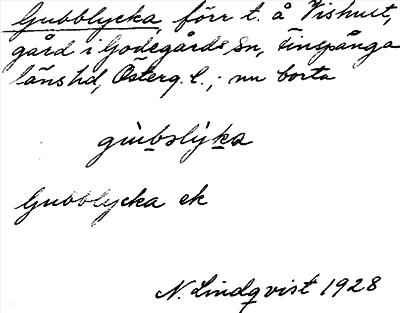 Gubblycka, förr t. å Vishult,
gård i Godegårds sn, Finspånga
länshd, Österg. l.; nu borta
gùbslỳka
Gubblycka ek
N. Lindqvist 1928